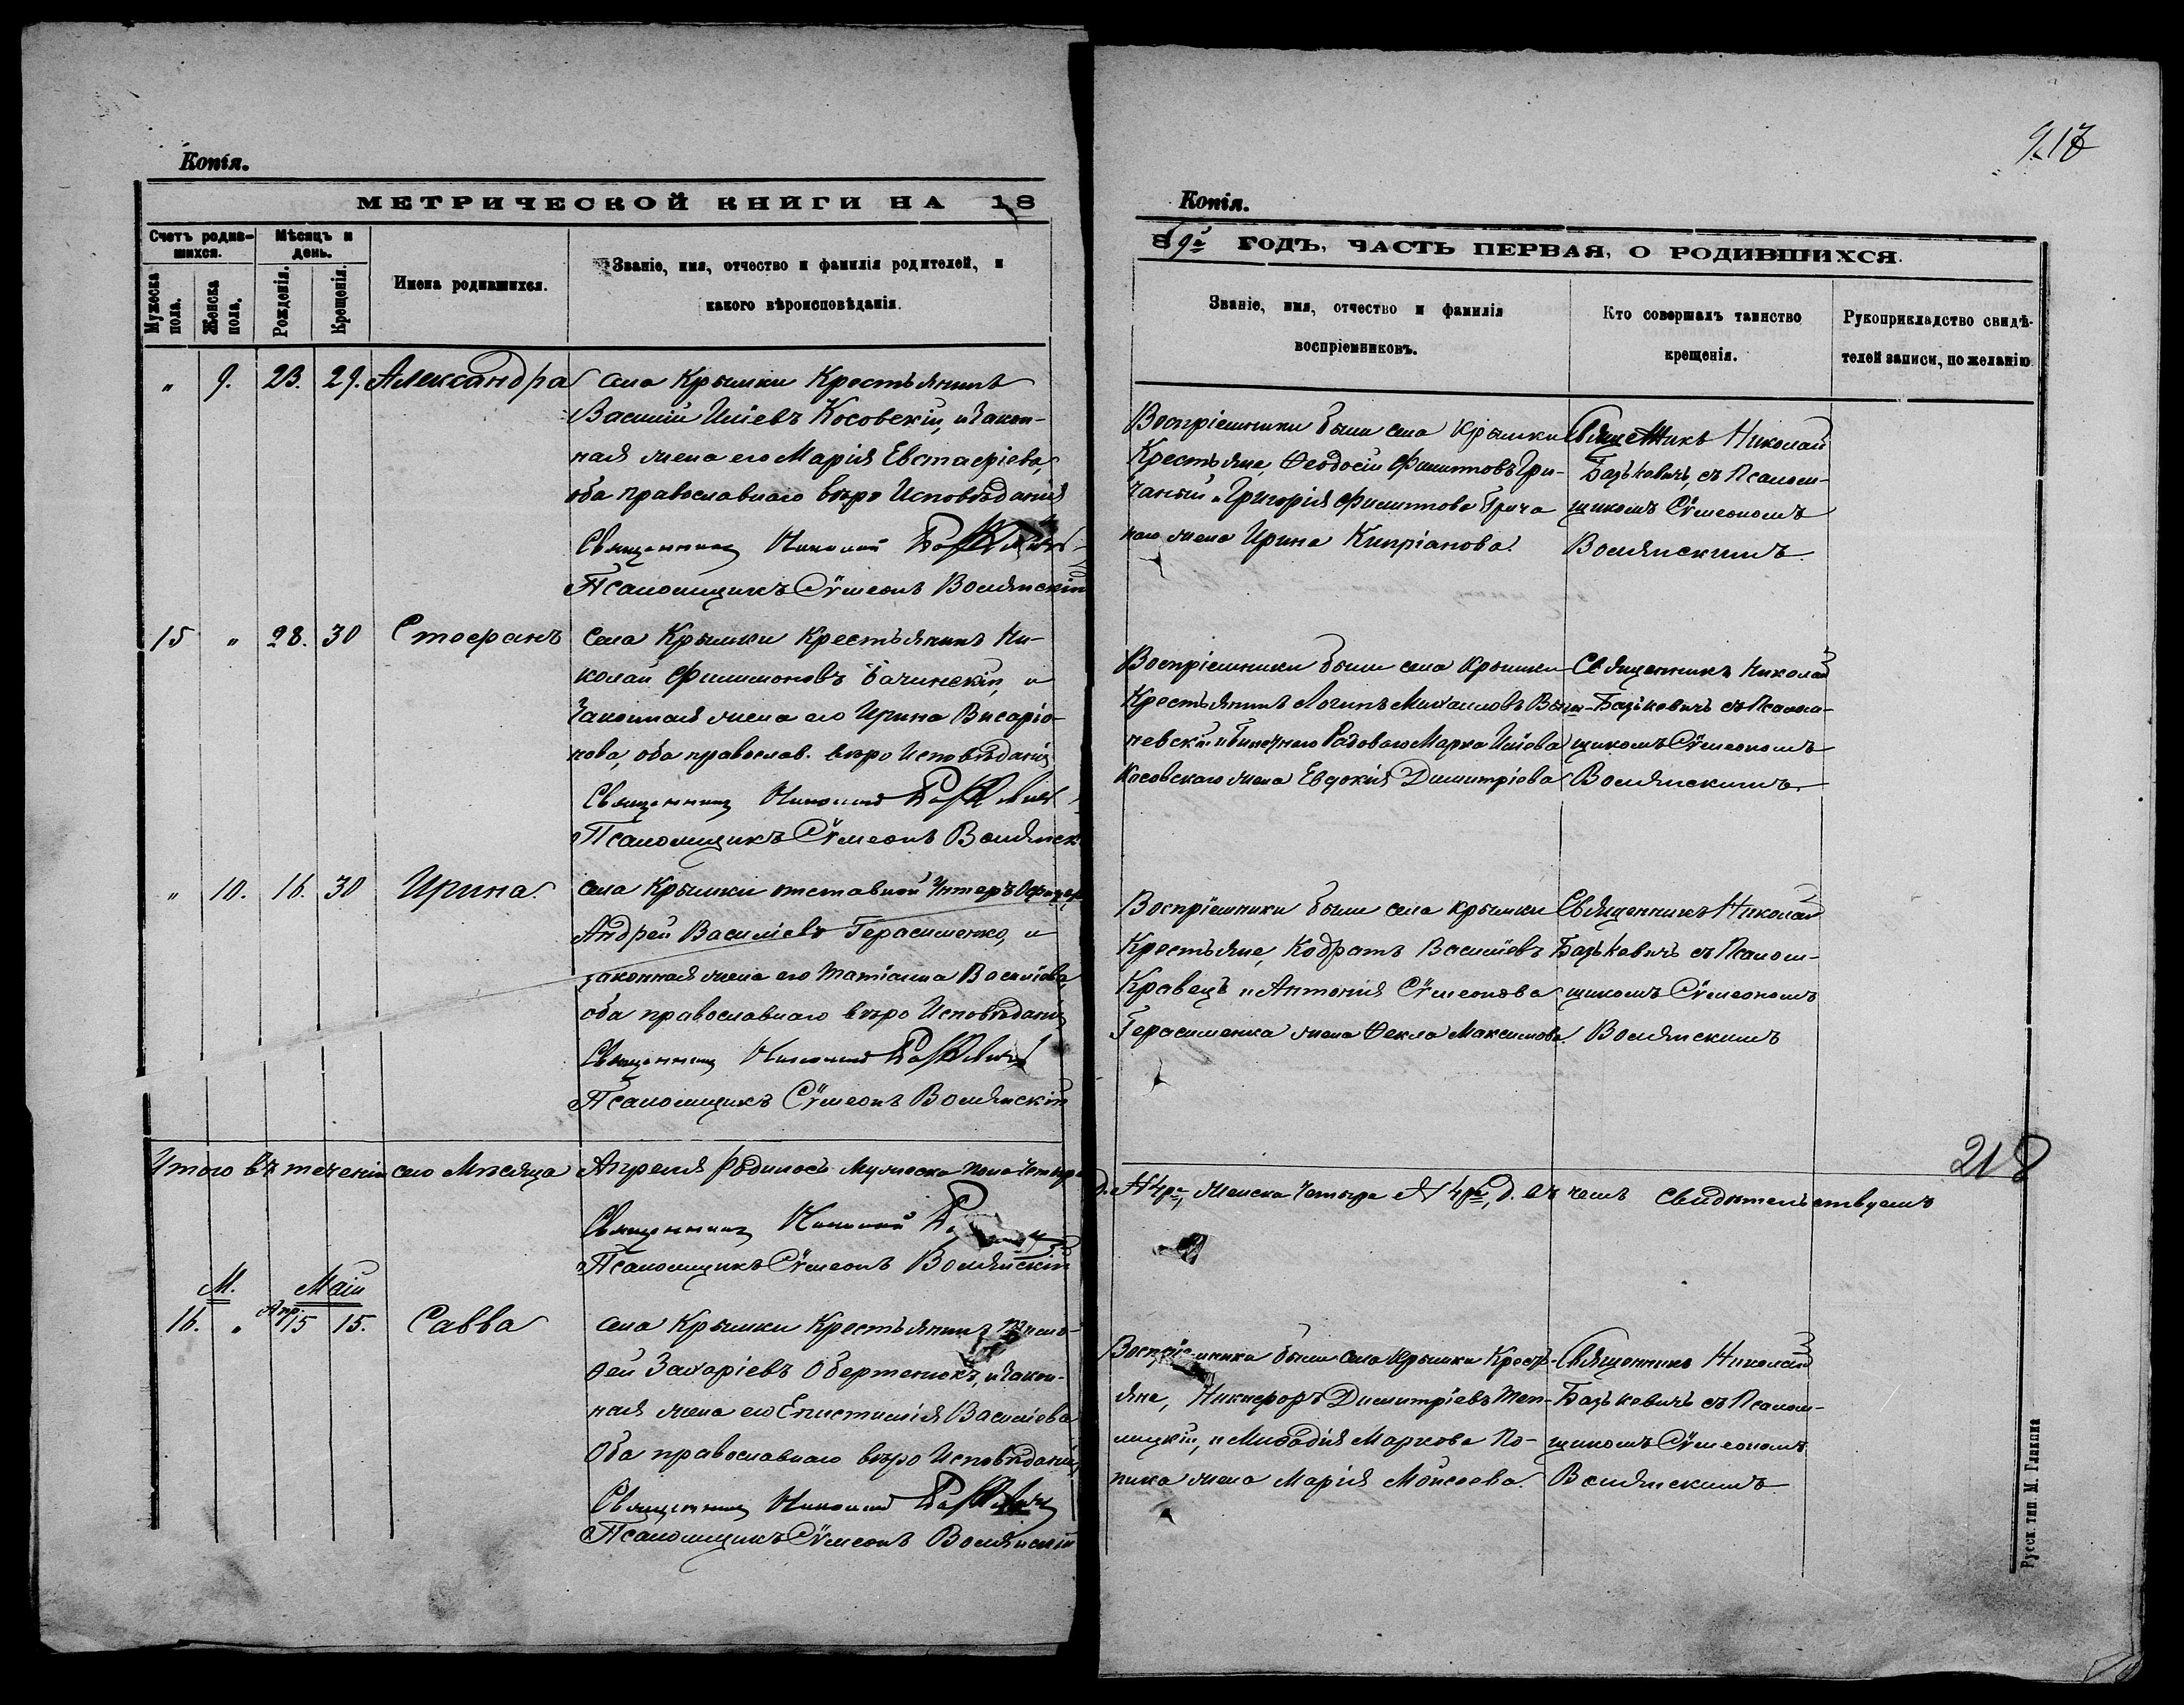 Копія.
МЕТРИЧЕСКОЙ КНИГИ НА 18
Счетъ родив-
шихся.
Мѣсяцъ и
день.
Мужеска
пола.
Женска
пола.
Рожденія.
Крещенія.
Имена родившихся.
Званіе, имя, отчество и фамилія родителей, и
какого вѣроисповѣданія.
" 9. 23. 29. Александра
села Крымки Крестьянинъ
Василій Иліевъ Косовскій, и закон-
ная жена его Марія Евстафіева,
оба православнаго вѣро Исповѣданія
Священникъ Николай
Псаломщикъ Сѵмеонъ Волянскій
15 " 28. 30 Стефанъ
Села Крымки Крестьянинъ Ни-
колай Филимоновъ Бачинскій, и
Законная жена его Ирина Висаріо-
нова, оба православ. вѣро Исповѣданія
Священникъ Николай
Псаломщикъ Сѵмеонъ Волянск
" 10. 16. 30 Ирина
села Крымки отставной Унтеръ Офицеръ
Андрей Василіевъ Герасименко, и
законная жена его Татіанна Василіева,
оба православнаго вѣро Исповѣданія
Священникъ Николай
Псаломщикъ Сѵмеонъ Волянскій
Итого въ теченіи сего Мѣсяца Апреля родилось Мужеска пола четыре
Священникъ Николай
Псаломщикъ Сѵмеонъ Волянскій
М. Маій
16. " Апр. 15 15. Савва
села Крымки Крестьянинъ Тимо-
фей Захаріевъ Обертенюкъ, и закон-
ная жена его Епистимія Василіева
Оба православнаго вѣро Исповѣданія
Священникъ Николай
Псаломщикъ Сѵмеонъ Волянскій
217
Копія.
89й ГОДЪ, ЧАСТЬ ПЕРВАЯ, О РОДИВШИХСЯ.
Званіе, имя, отчество и фамилія
воспріемниковъ.
Кто совершалъ таинство
крещенія.
Рукоприкладство свидѣ-
телей записи, по желанію
Воспріемники были села Крымки
Крестьяне, Феодосій Филипповъ Гри-
чаный и Григорія Филиппова Грича
наго жена Ирина Кипріанова.
Священникъ Николай
Базькевичъ, съ Псалом-
щикомъ Сѵмеономъ
Волянскимъ.
Воспріемники были села Крымки
Крестьянинъ Логинъ Михаиловъ
Рядоваго Марка Иліева
Косовскаго жена Евдокія Димитріева
Священникъ Николай
Базькевичъ съ Псалом-
щикомъ Сѵмеономъ
Волянскимъ.
Воспріемники были села Крымки
Крестьяне, Кодратъ Василіевъ
Кравецъ и Антонія Сѵмеонова
Герасименка жена Фекла Максимова.
Священникъ Николай
Базькевичъ съ Псалом-
щикомъ Сѵмеономъ
Волянскимъ
218
д. №4ре, женска четыре №4ре, д. въ чемъ свидѣтельствуемъ
Воспріемники были села Крымки Кресть-
яне, Никифоръ Димитріевъ Теп-
лицкій, и Миѳодія Маркова По-
пика жена Марія Моисеева.
Священникъ Николай
Базькевичъ съ Псалом-
щикомъ Сѵмеономъ
Волянскимъ
Русск. тип. М. Гликина